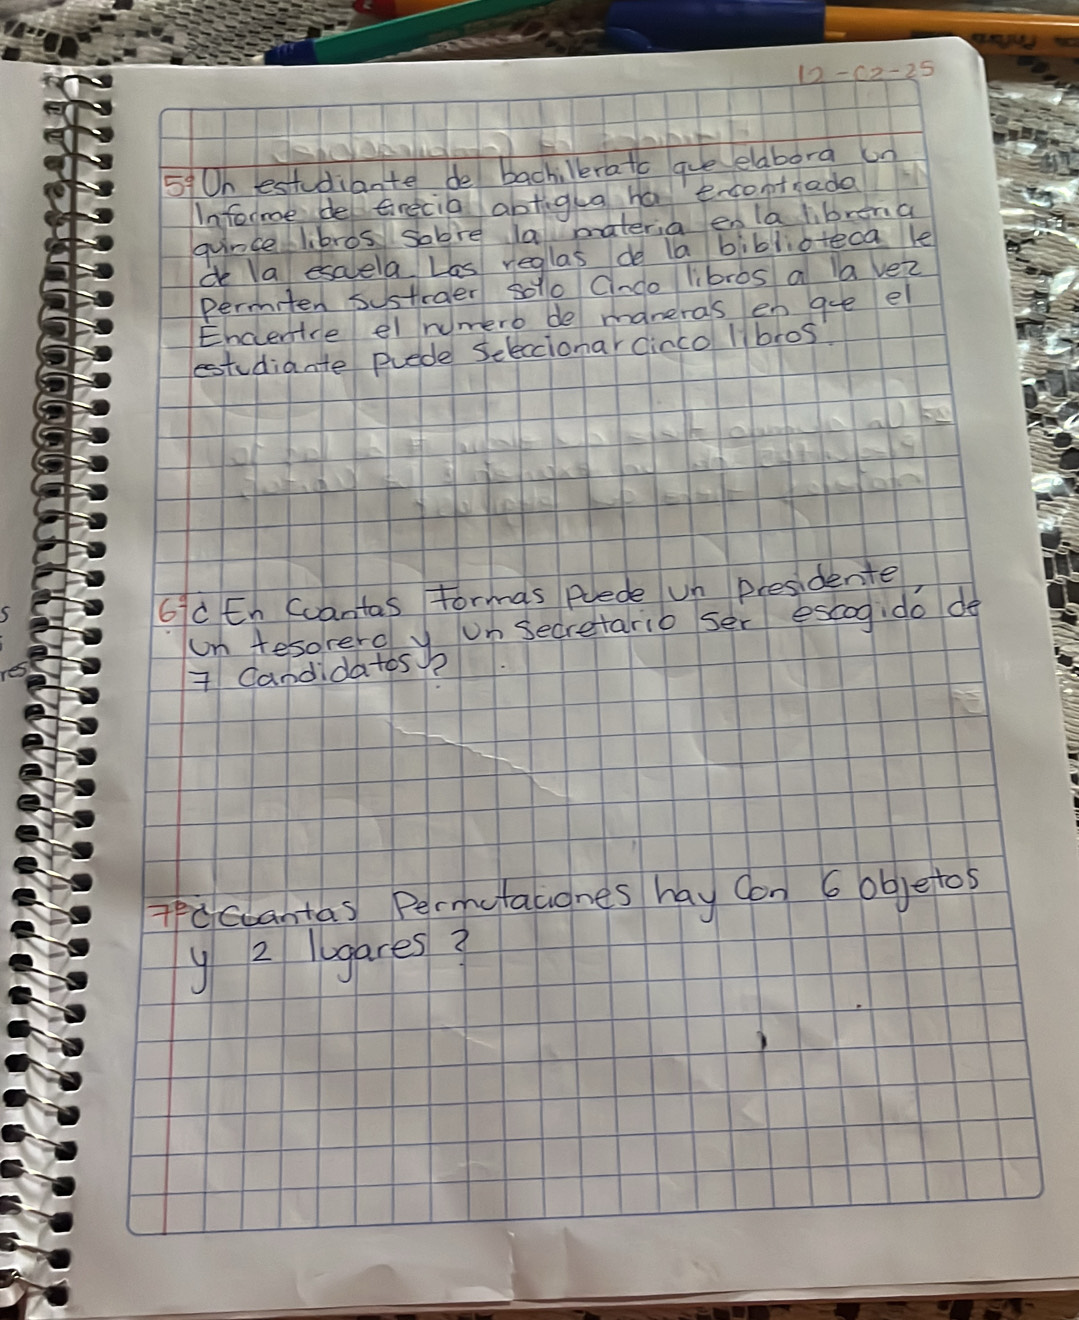 12-02-25
5º Un estudiante de bachillerato que elabora un
Informe de Grecia antigua ha encontrado
quince libros sobre la materia en la libreria
de la escuela. Las reglas de la biblioteca le
Permiten sustraer solo Cinco libros a la vez
Encuentre el numero de maneras en que el
estudiante Puede Seleccionar Cinco libros.
6º ¿ En Cuantas formas Puede un Presidente,
un tesorero y un Secretario Ser escogido de
7 Candidatos?
7º ¿Cuantas Permutaciones hay Con 6 objetos
y 2 lugares?
s
res